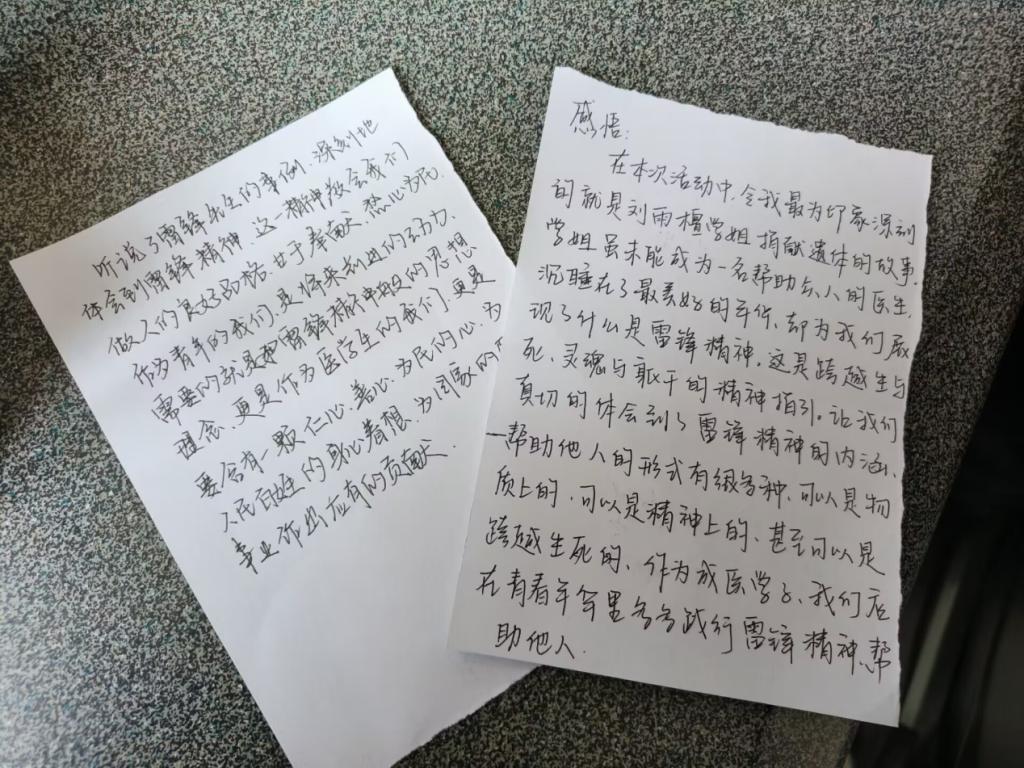 听说了雷锋出生的事例、深刻地
体会到雷锋精神、这一精神教会我们
做人的良好品格、甘于奉献、热心为民、
作为青年的我们、是将来前进的动力、
需要的就是把雷锋精神中的思想
理念、更是作为医学生的我们、更是
要含有一颗仁心、善心、为民的心、为
人民百姓的身心着想、为国家的
事业作出应有的贡献、
感悟:
在本次活动中,令我最为印象深刻
的就是刘雨檀学姐捐献遗体的故事.
学姐虽未能成为一名帮助众人的医生,
沉睡在了最美好的年华,却为我们展
现了什么是雷锋精神。这是跨越生与
死、灵魂与躯干的精神指引。让我们
真切的体会到了雷锋精神的内涵、
—帮助他人的形式有很多种、可以是物
质上的、可以是精神上的、甚至可以是
跨越生死的、作为成医学子、我们应
在青春年华里多多践行雷锋精神、帮
助他人.